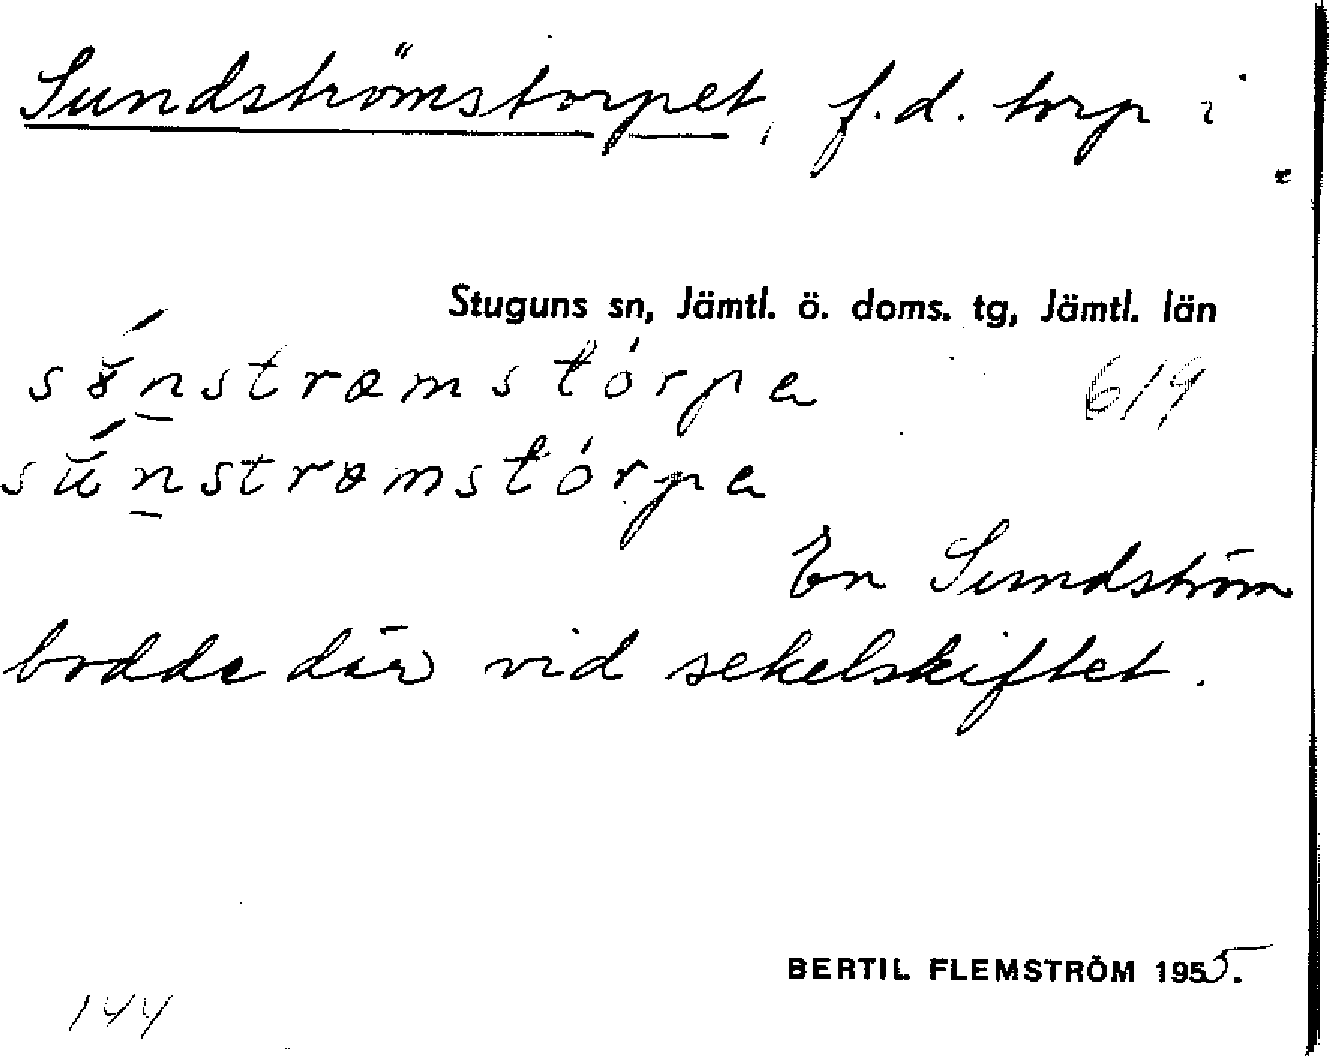 Sundströmstorpet, f.d. torp i
Stuguns sn, Jämtl. ö. doms. tg, Jämtl. län
619
En Sundström
bodde där vid sekelskiftet.
BERTIL FLEMSTRÖM 1955.
144